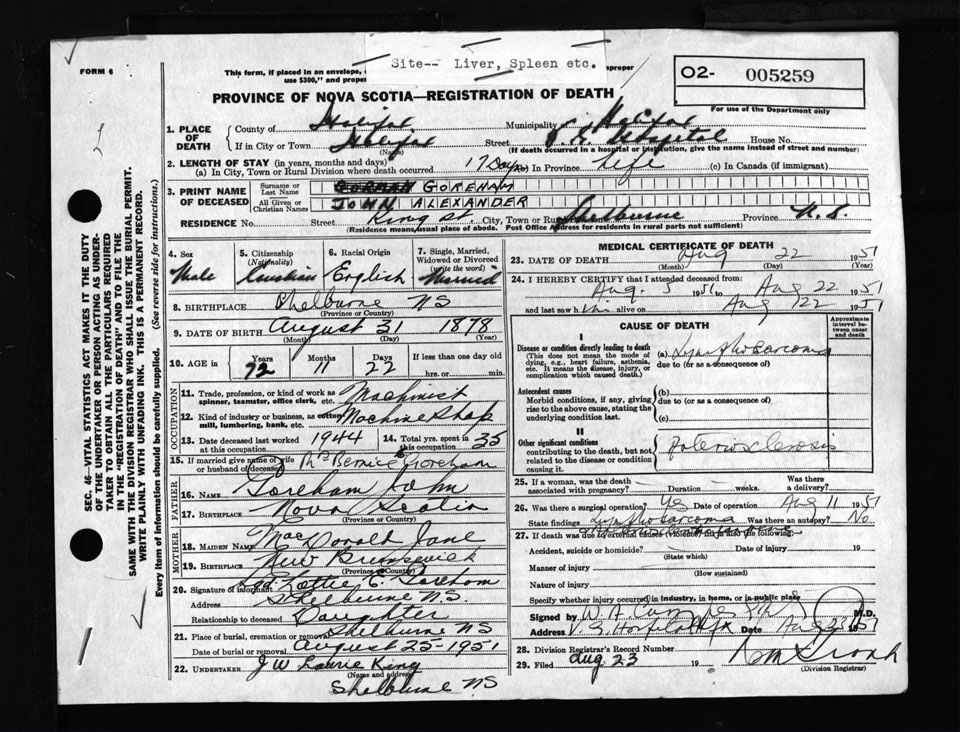 FORM 6
Site-- Liver, Spleen etc.
This form, if placed in an envelope, improper
use $300," and proper
O2- 005259
For use of the Department only
PROVINCE OF NOVA SCOTIA—REGISTRATION OF DEATH
1. PLACE OF DEATH County of Halifax Municipality Halifax
If in City or Town Halifax Street V. G. Hospital House No.
(Name) (If death occurred in a hospital or institution, give the name instead of street and number)
2. LENGTH OF STAY (in years, months and days)
(a) In City, Town or Rural Division where death occurred 17 Days (b) In Province Life (c) In Canada (if immigrant)
3. PRINT NAME OF DECEASED Surname or Last Name GOREHAM
All Given or Christian Names JOHN ALEXANDER
RESIDENCE No. Street King St. City, Town or Rural Shelburne Province N.S.
(Residence means usual place of abode. Post Office Address for residents in rural parts not sufficient)
4. Sex Male
5. Citizenship (Nationality)
6. Racial Origin English
7. Single, Married, Widowed or Divorced (write the word) Married
8. BIRTHPLACE Shelburne NS
(Province or Country)
9. DATE OF BIRTH August 31 1878
(Month) (Day) (Year)
10. AGE in Years 72 Months 11 Days 22 If less than one day old
hrs. or min.
OCCUPATION
11. Trade, profession, or kind of work as spinner, teamster, office clerk, etc. Machinist
12. Kind of industry or business, as cotton mill, lumbering, bank, etc. Machine Shop
13. Date deceased last worked at this occupation 1944 14. Total yrs. spent in this occupation 35
15. If married give name of wife or husband of deceased Bernice Goreham
FATHER
16. Name Goreham John
17. BIRTHPLACE Nova Scotia
(Province or Country)
MOTHER
18. MAIDEN NAME MacDonald Jane
19. BIRTHPLACE New Brunswick
(Province or Country)
20. Signature of informant Sgd. Lottie E. Goreham
Address Shelburne N.S.
Relationship to deceased Daughter
21. Place of burial, cremation or removal Shelburne NS
Date of burial or removal August 25-1951
22. UNDERTAKER J W Laurie King
(Name and address)
Shelburne NS
MEDICAL CERTIFICATE OF DEATH
23. DATE OF DEATH Aug 22 1951
(Month) (Day) (Year)
24. I HEREBY CERTIFY that I attended deceased from:
Aug. 5 1951 to Aug 22 1951
and last saw him alive on Aug 22 1951
CAUSE OF DEATH
Approximate interval between onset and death
I
Disease or condition directly leading to death (a) Lymphosarcoma
(This does not mean the mode of dying, e.g., heart failure, asthenia, etc. It means the disease, injury, or complication which caused death.)
due to (or as a consequence of)
Antecedent causes (b)
Morbid conditions, if any, giving rise to the above cause, stating the underlying condition last.
due to (or as a consequence of)
(c)
II
Other significant conditions
contributing to the death, but not related to the disease or condition causing it.
Arteriosclerosis
25. If a woman, was the death associated with pregnancy? Duration weeks. Was there a delivery?
26. Was there a surgical operation? Yes Date of operation Aug 11 1951
State findings Lymphosarcoma Was there an autopsy? No
27. If death was due to external causes (violence) fill in also the following:
Accident, suicide or homicide? Date of injury 19
(State which)
Manner of injury
(How sustained)
Nature of injury
Specify whether injury occurred in industry, in home, or in public place
Signed by M.D.
Address V. G. Hospital Hfx Date Aug 23 1951
28. Division Registrar's Record Number
29. Filed Aug. 23 19
(Division Registrar)
SEC. 46—VITAL STATISTICS ACT MAKES IT THE DUTY
OF THE UNDERTAKER OR PERSON ACTING AS UNDER-
TAKER TO OBTAIN ALL THE PARTICULARS REQUIRED
IN THE "REGISTRATION OF DEATH" AND TO FILE THE
SAME WITH THE DIVISION REGISTRAR WHO SHALL ISSUE THE BURIAL PERMIT.
WRITE PLAINLY WITH UNFADING INK. THIS IS A PERMANENT RECORD.
Every item of information should be carefully supplied. (See reverse side for instructions.)